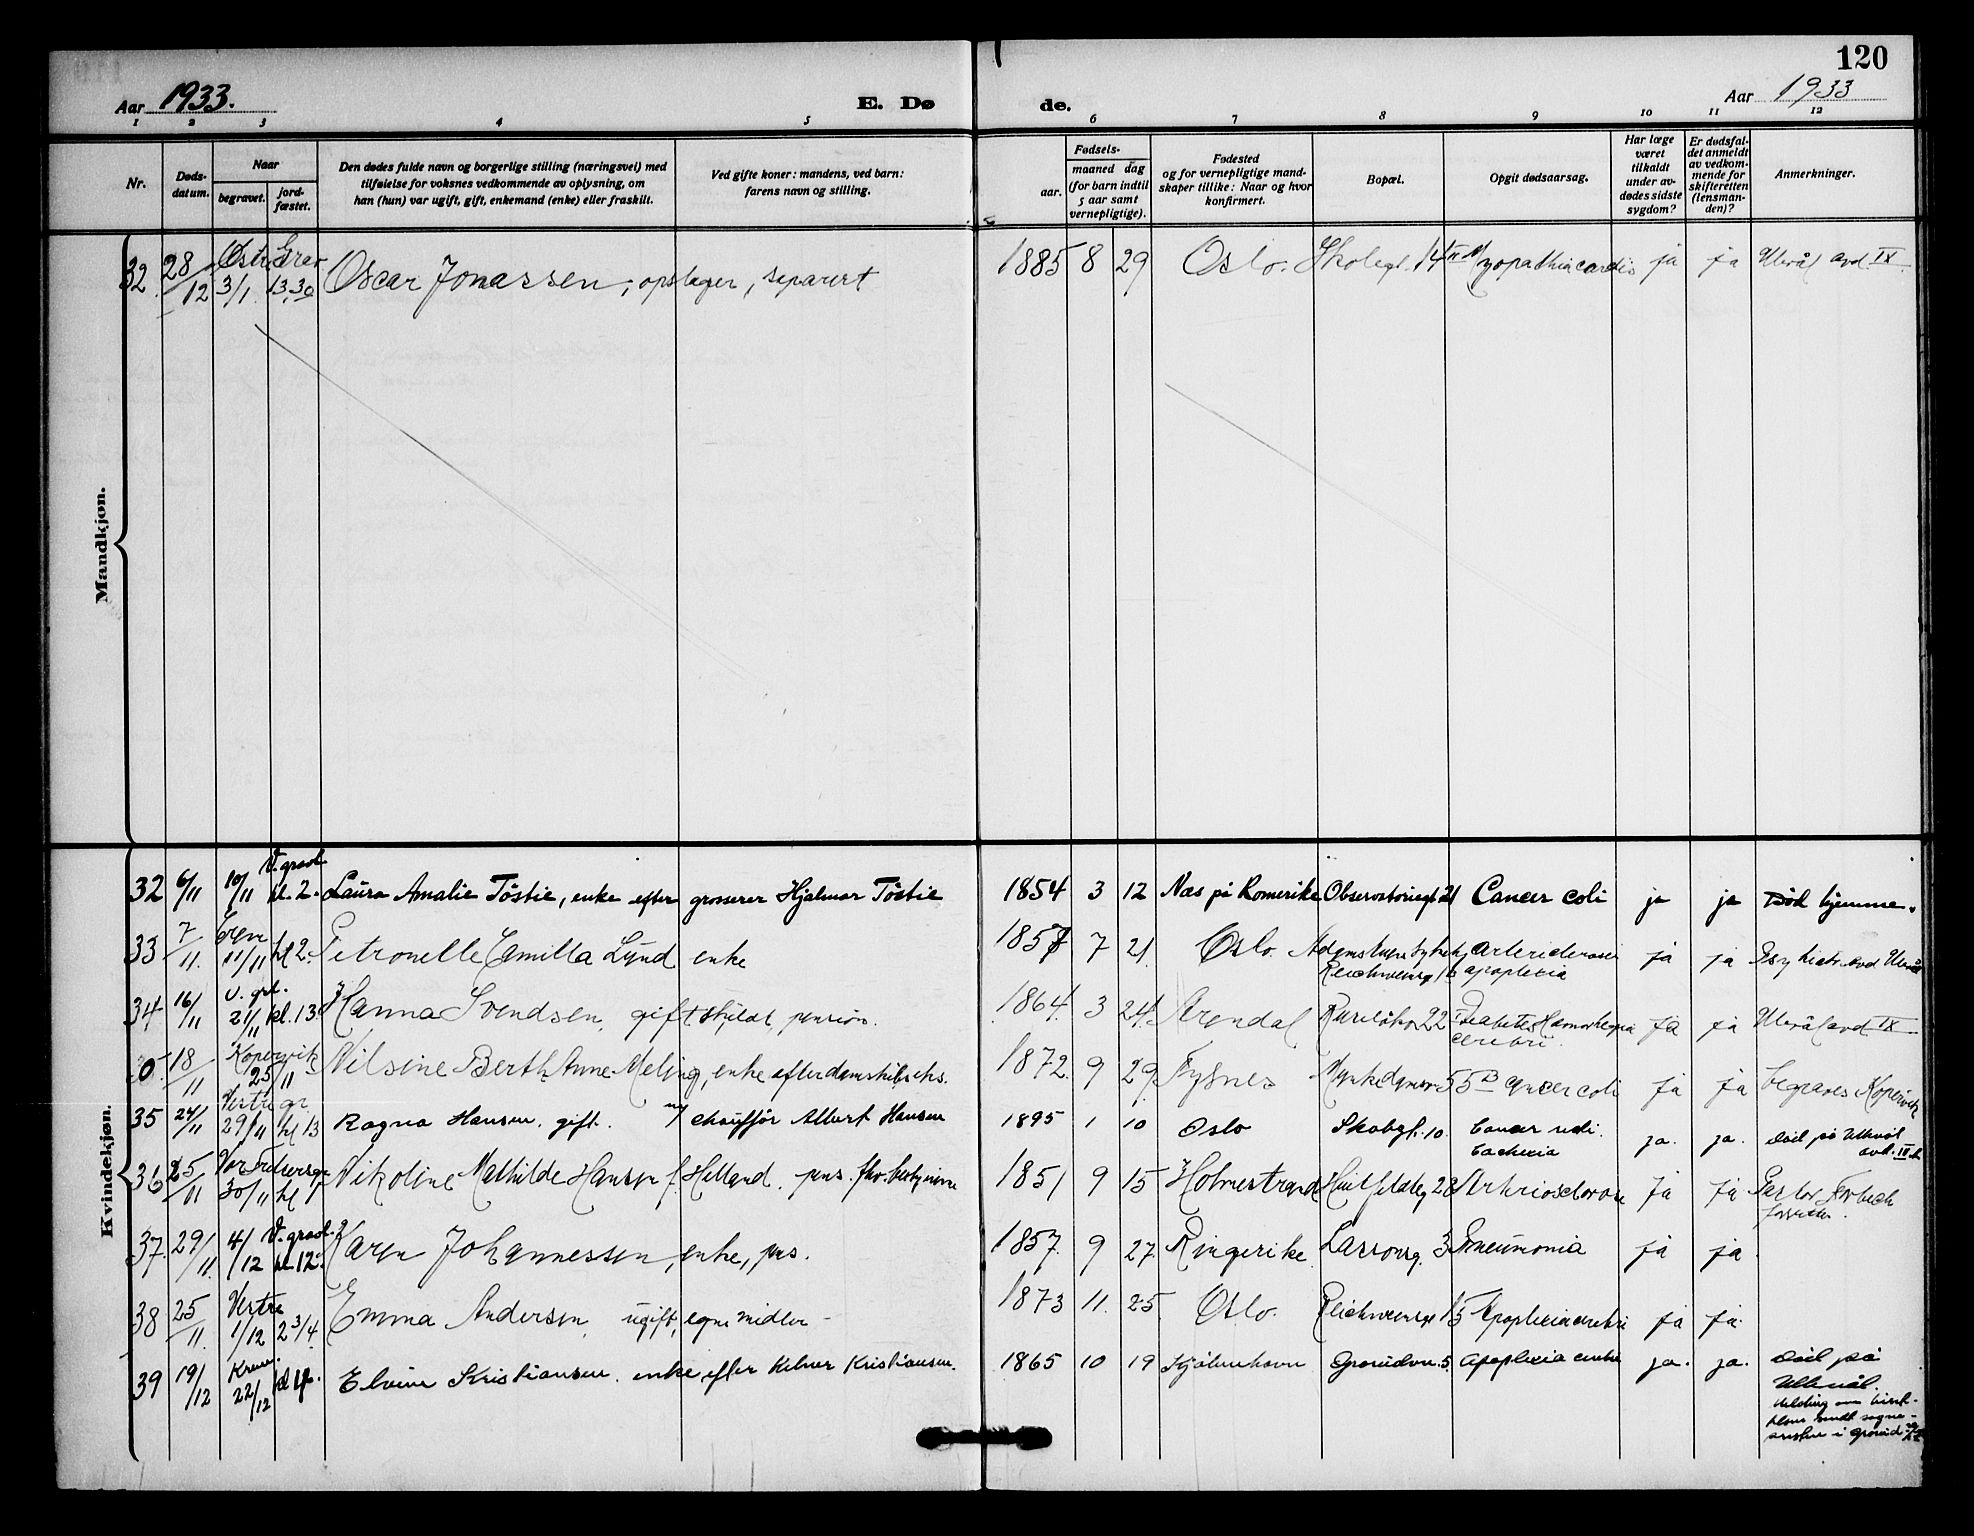 120
Aar 1933. E. Dø de. Aar 1933
1 2 3 4 5 6 7 8 9 10 11 12
Nr.
Døds-
datum.
Naar
begravet.
jord-
fæstet.
Den dødes fulde navn og borgerlige stilling (næringsvei) med
tilføielse for voksnes vedkommende av oplysning, om
han (hun) var ugift, gift, enkemand (enke) eller fraskilt.
Ved gifte koner: mandens, ved barn:
farens navn og stilling.
Fødsels-
aar.
maaned dag
(for barn indtil
5 aar samt
vernepligtige).
Fødested
og for vernepligtige mand-
skaper tillike: Naar og hvor
konfirmert.
Bopæl.
Opgit dødsaarsag.
Har læge
været
tilkaldt
under av-
dødes sidste
sygdom?
Er dødsfal-
det anmeldt
av vedkom-
mende for
skifteretten
(lensman-
den)?
Anmerkninger.
Mandkjøn.
32. 28/12 Østre Grav 3/1 13.30 Oscar Jonassen, opslager, separert 1885 8 29 Oslo. Skolegt. 14 II Myopathia cordis ja ja Ulvål avd IX
Kvindekjøn.
32 6/11 10/11 V. gravl. kl. 2. Laura Amalie Töstie, enke efter grosserer Hjalmar Töstie 1854 3 12 Nes på Romerike Observatoriegt 21 Cancer coli ja ja Död hjemme.
33 7/11. 11/11 kl 2. Petronelle Camilla Lund enke 7 21. Oslo. Reichweinsg 1b apoplexia ja ja avd Ulvål
34 16/11 V. grl. 21/11 kl. 13 Hanna Svendsen, gift skildt, pension. 1864. 3 24. Arendal 22 Diabetes cerebri. ja ja Ulvål avd IX
18/11 Kopervik 25/11 Nilsine Berth. Anne Meling, enke efter 1872. 9 29. Munkedamsv. 55 B Cancer coli ja ja begraves Kopervik
35 24/11 Vestre gr 29/11 kl 13 Ragna Hansen. gift. m/ chaufför Albert Hansen 1895 1 10 Oslo Skovgt. 10. Cancer
Cachexia ja. ja. död på Ullevål
avd. III
36 25/11 Vor Frelsersgr 30/11 kl 1 Nikoline Mathilde Hansen f. Helland. pens. 1851 9 15 Holmestrand Huitfeldtsg 28 Arteriosclerose ja ja Pastor
forretter.
37. 29/11. 4/12 V. gravl. kl. 12. Karen Johannessen, enke, pns. 1857. 9 27. Ringerike. Lassonsg. 3 Pneumonia ja ja
38 25/11. Vestre 1/12 2 3/4 Emma Andersen, ugift, egne midler 1873 11. 25 Oslo. Reichweinsgt 15 Apoplexia cerebri ja ja.
39 19/12 Krem. 22/12 kl Elvine Kristiansen. enke efter Kelner Kristiansen. 1865 10 19 Kjöbenhavn 5. apoplexia cerebri ja. ja. död på
Ullevål.
Melding om
sendt sogne-
presten i